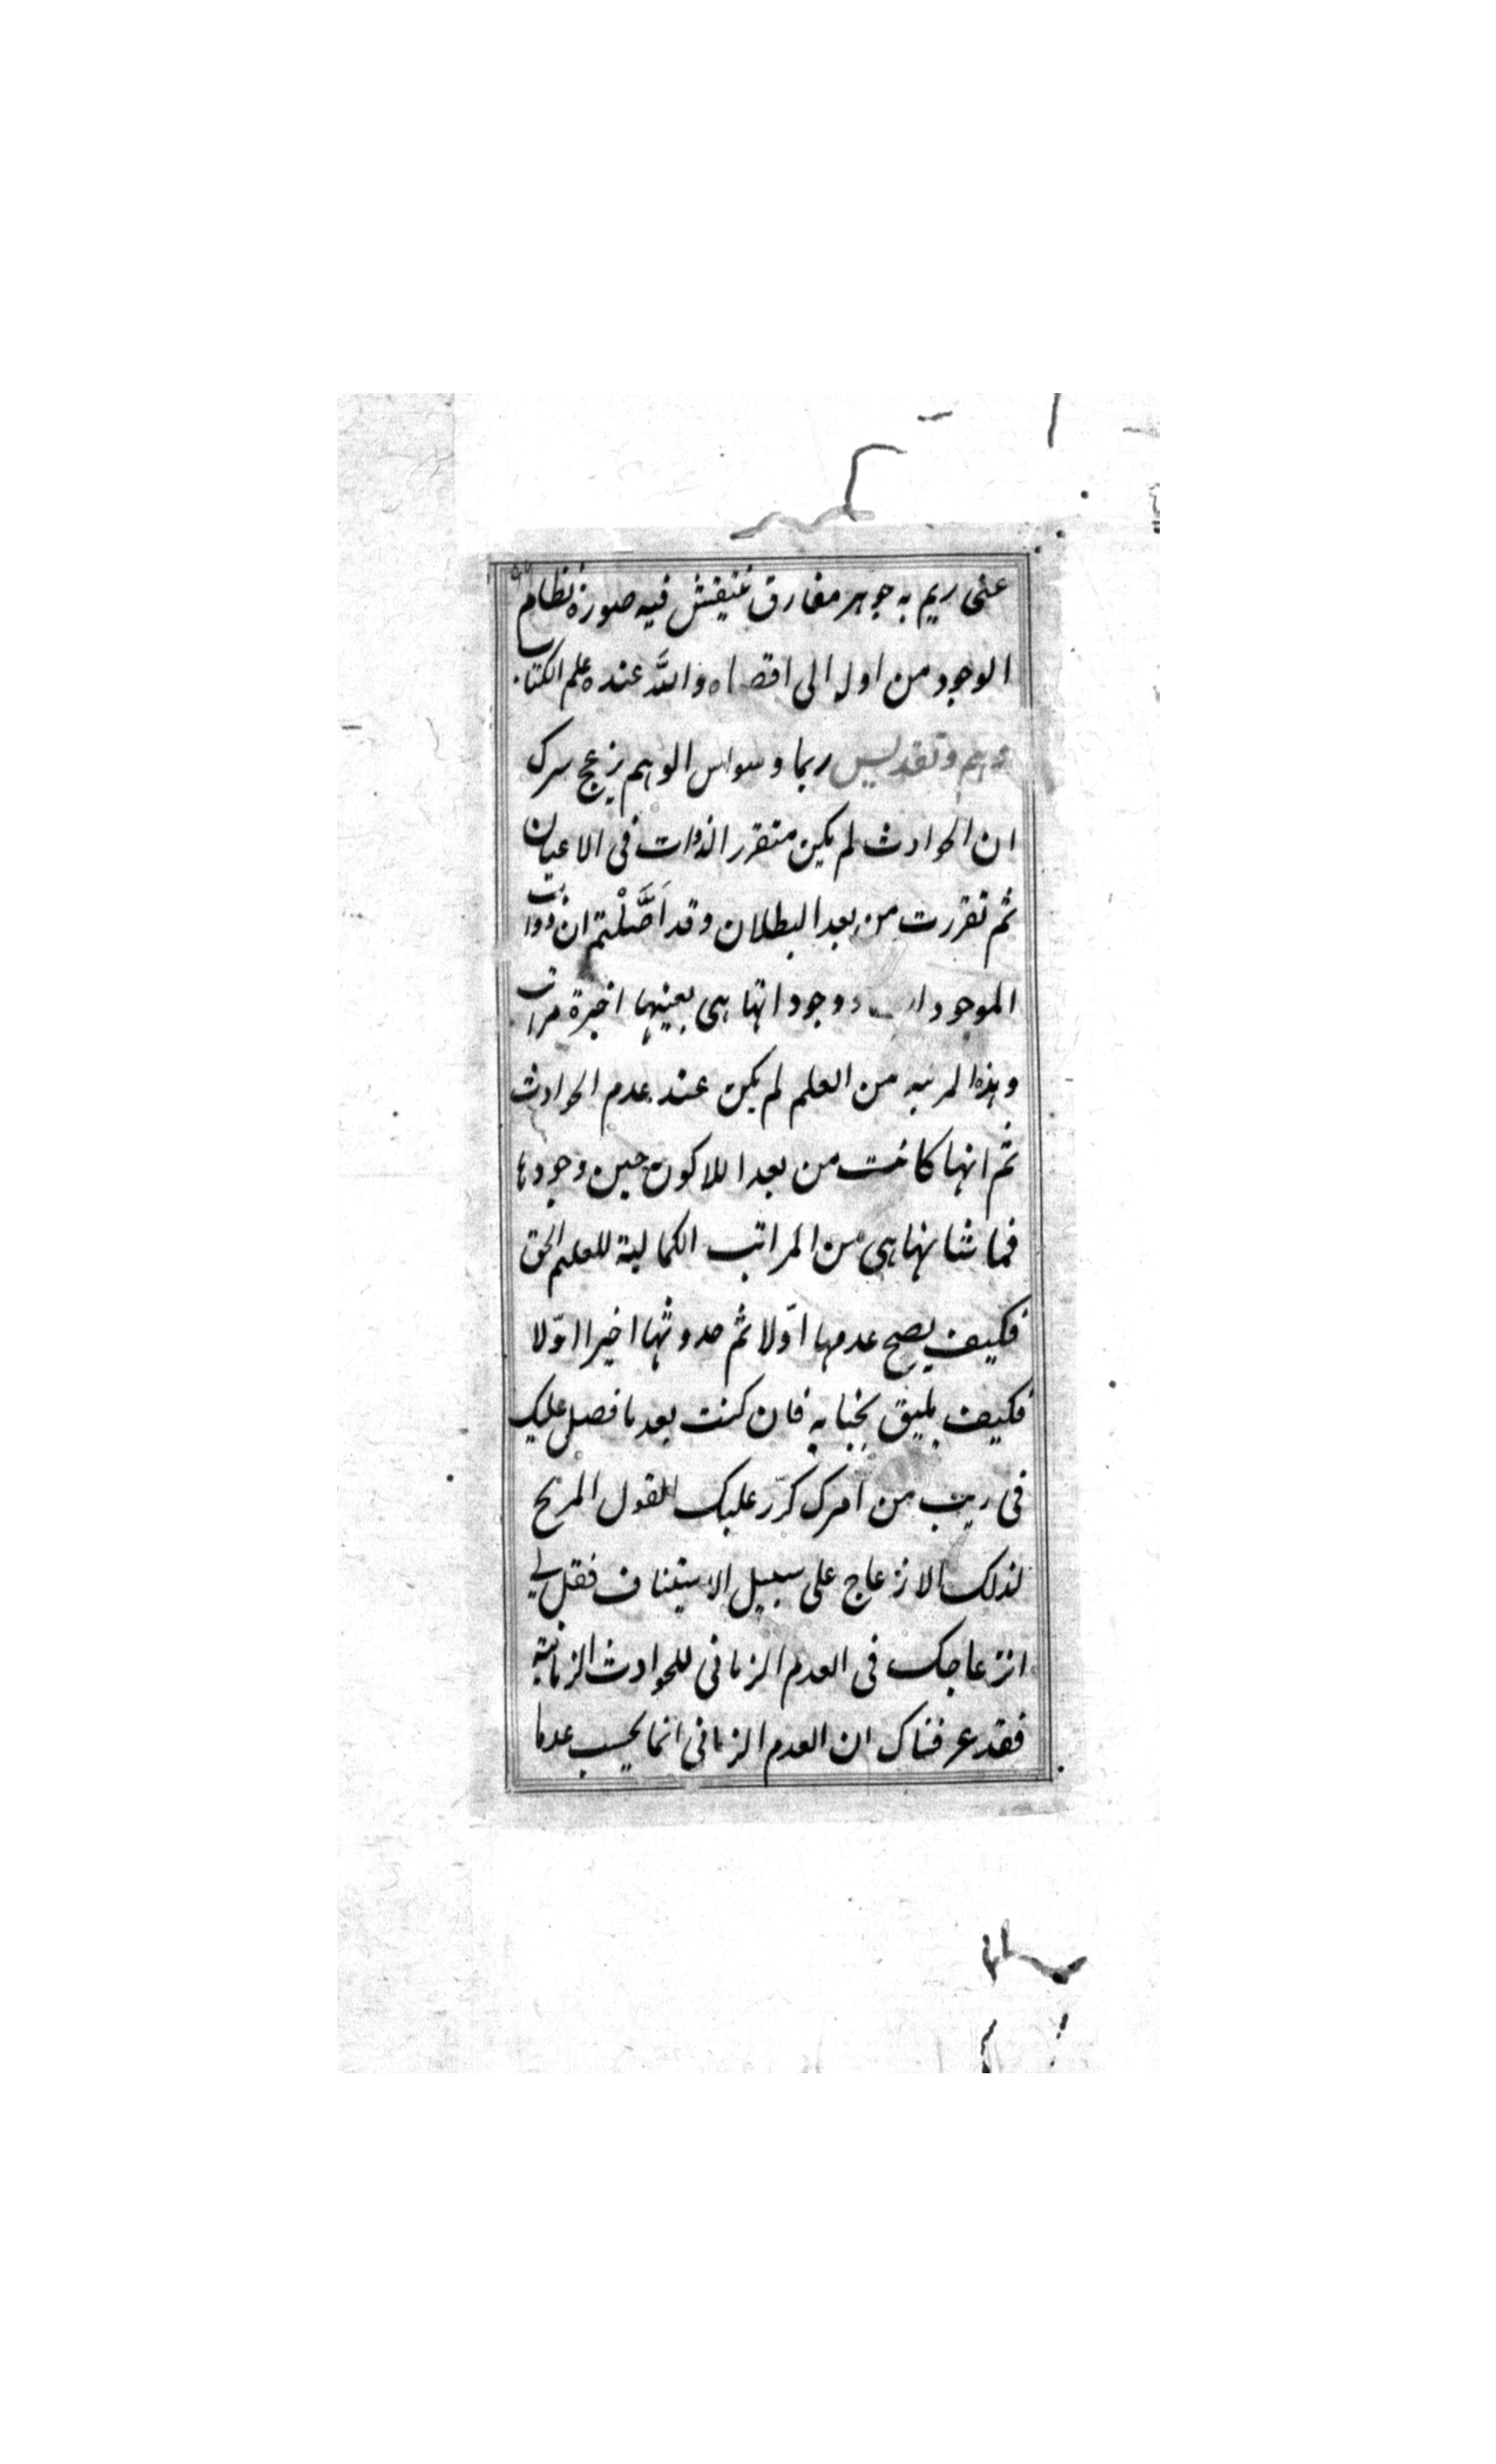 على ريم به جوهر مفارق ينتقش فيه صورة نظام
الوجود من اوله الى اقصاه والله عنده علم الكتاب
وهم وتقديس ربما وسواس الوهم يزعج سرك
ان الحوادث لم يكن متقرر الذوات فى الاعيان
ثم تقررت من بعد البطلان وقد اَصَّلْتم ان ذوات
الموجودات ووجوداتها هى بعينها اخيرة مراتب
وهذه المرتبه من العلم لم يكن عند عدم الحوادث
ثم انها كانت من بعد اللاكون حين وجودها
فما شانها هى من المراتب الكمالية للعلم الحق
فكيف يصح عدمها اوّلا ثم حدوثها اخيرا اوّلا
فكيف يليق بجنابه فان كنت بعد ما فصل عليك
فى ريب من امرك كرّر عليك القول المريح
لذلك الانزعاج على سبيل الاستيناف فقل لى
انزعاجك فى العدم الزمانى للحوادث الزمانية
فقد عرفناك ان العدم الزمانى انما يحسب عدما